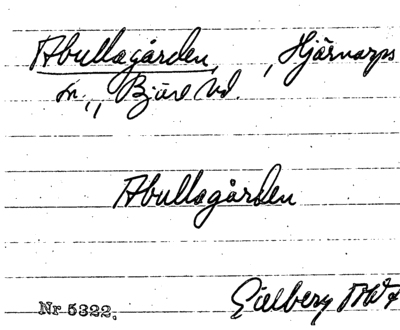 Abullagården, Hjärnarps
sn., Bjäre hd.
Abullagården
Nr 5322.